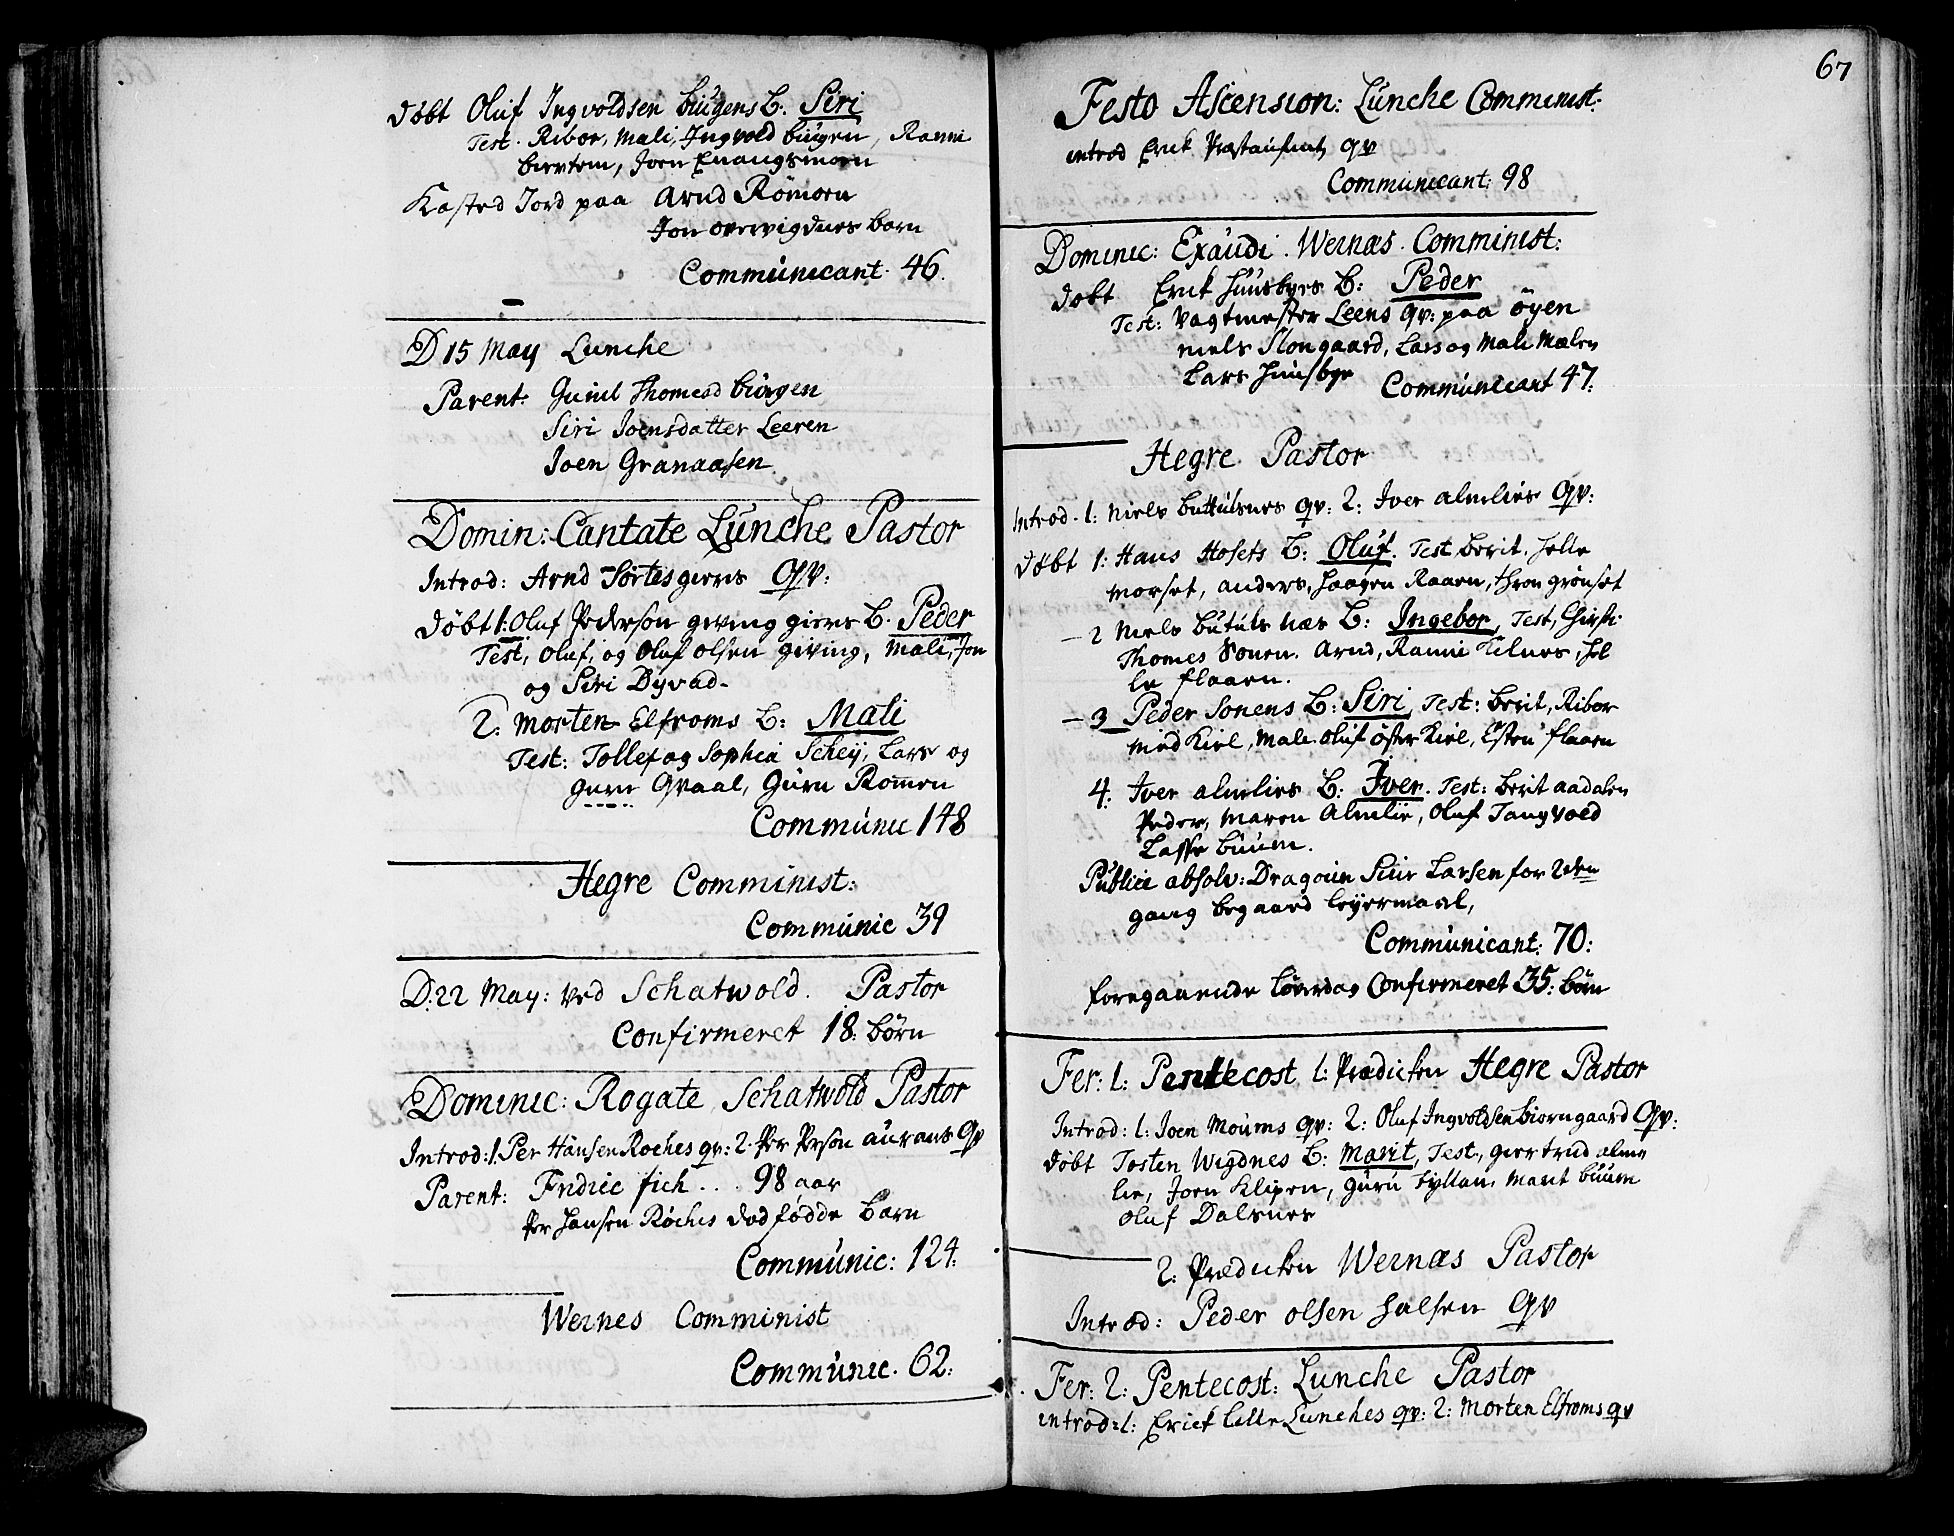 Døbt Oluf Ingvoldsen biugens B. Siri
Test. Ribor, Mali, Ingvold biugen, Ranni
Joen
Kasted Jord paa Arnd Römoen
Jon overvigdnes barn
Communicant. 46.
D 15 May Lunche
Parent: Guniil Thomesd biugen
Siri Joensdatter Leeren
Joen Granaasen
Domin: Cantate Lunche Pastor
Introd: Arnd Sortesgierts qv:
Døbt 1: Oluf Pederson geving giers B. Peder
Test, Oluf, og Oluf olsen geving, Mali, Jon
og Siri Dyvad.
2: Morten Elfroms B: Mali
Test: Tollef og Sophia Scheij, Lars og
guru Qvaal, Guru Romoen
Communic 148
Hegre Comminist:
Communic 39
D: 22 May: ved Schatwold. Pastor
Confirmeret 18: börn
Dominic: Rogate Schatwold Pastor
Introd: 1. Per Hansen Roches qv: 2. Per Person aurans qv
Parent: Fridric fich . . . 98 aar
Per Hansen Röches dødfödde Barn
Communic: 124.
Wernes Comminist
Communic. 62:
67
Festo Ascension: Lunche Comminist:
introd Erick qv
Communicant: 98
Dominic: Exaudi. Wernæs. Comminist:
døbt Erick Huusbyes B: Peder
Test: Vagtmester Leens qv: paa öyen
niels Slongaard, Lars og Mali Mælen
Lars Huusbye
Communicant 47.
Hegre Pastor
Introd. 1: Niels Buttulsnes qv: 2: Iver almlies qv:
Døbt 1: Hans Hosets B: Oluf. Test berit. Helle
morset, anders, Haagen Raaen, thron grönset
- 2 Niels butuls næs B: Ingebor, Test, Christi
Thomes Sonen. Arnd, Ranni Kilnes, Hel
le flaaen.
- 3 Peder Sonens B: Siri, Test: berit, Ribor
med Kiel, Mali. Oluf öster Kiel, Esten flaaen
4: Iver almlies B: Iver. Test: berit aadalen
Peder, Maren Almlie, Oluf Tangvold
Lasse buum.
Publice absolv: Dragoun Siur Larsen for 2den
gang begaaed leyermaal,
Communicant: 70:
foregaaende Löverdag Confirmeret 35: börn
Fer: 1: Pentecost 1: Prædicken Hegre Pastor
Introd: 1: Joen Moums qv: 2: Oluf Ingvoldsen biorngaard qv:
Døbt Tosten Wigdnes B: Marit, Test, giertrud alm
lie, Joen Klipen, guru Fyllan. Marit buum
Oluf Dalsnes
2: Prædicken Wernæs Pastor
Introd: Peder olsen Halsen qv
Fer: 2: Pentecost: Lunche Pastor
introd: 1: Erick lille Lunches qv: 2: Morten Elfroms qv